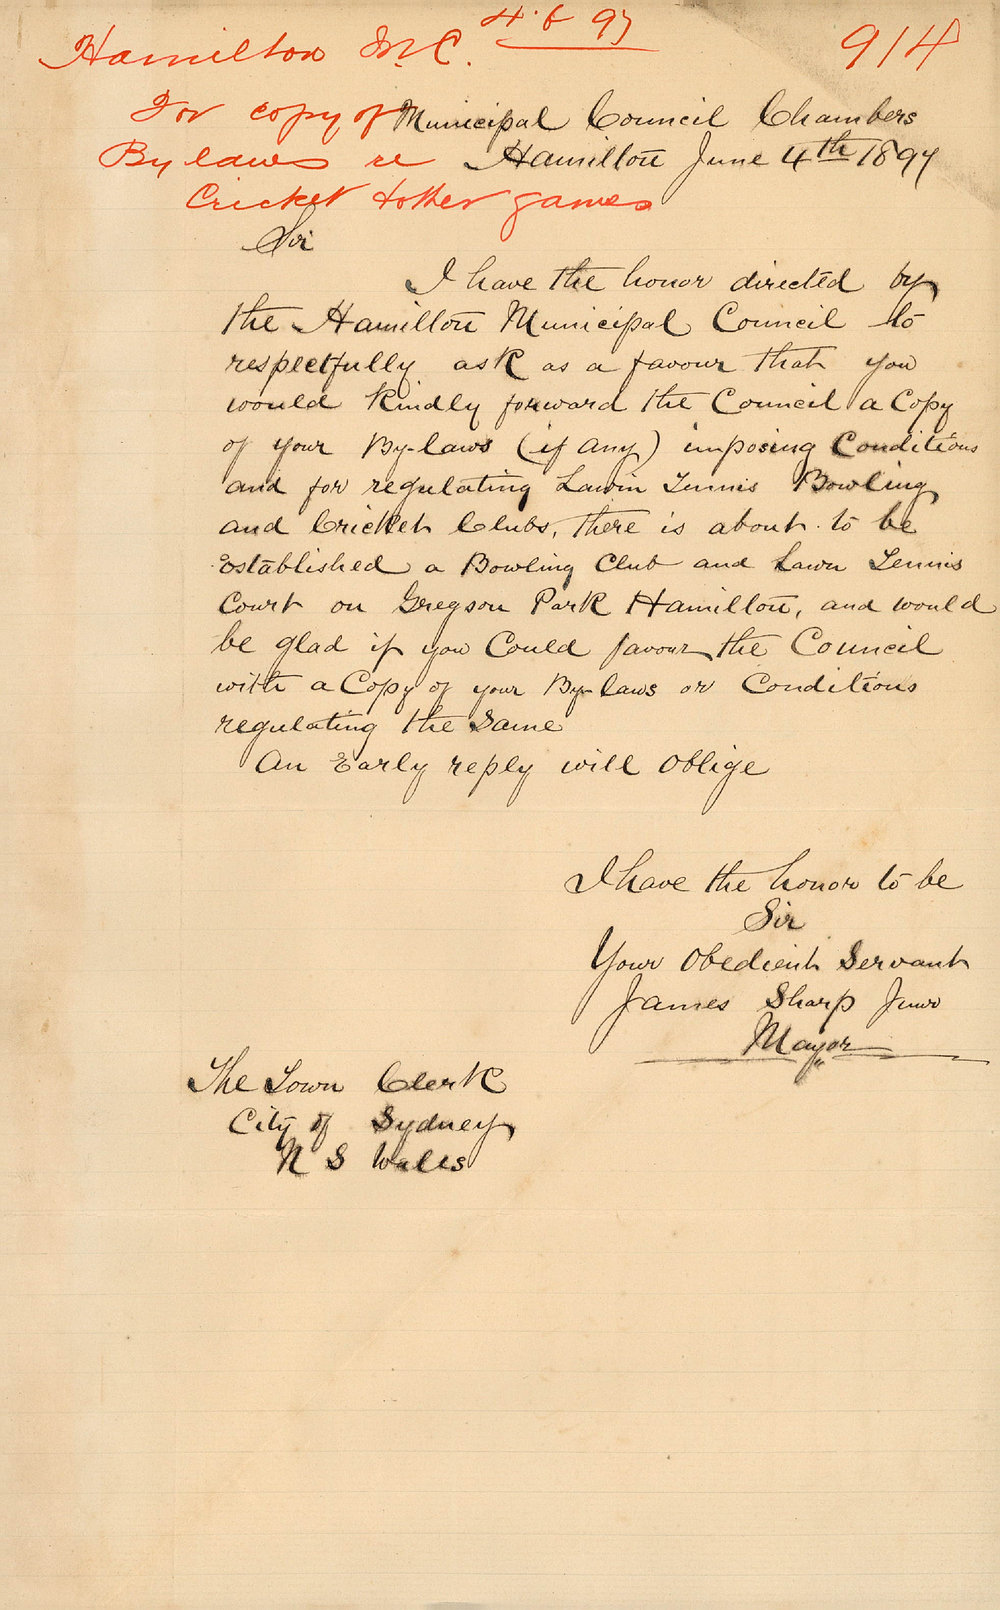 4.6 97
Hamilton M.C. 914
For copy of
By laws re
Cricket & other games
Municipal Council Chambers
Hamilton June 4th 1897
Sir
I have the honor directed by
the Hamilton Municipal Council to
respectfully ask as a favour that you
would kindly forward the Council a Copy
of your By-laws (if any) imposing Conditions
and for regulating Lawn Tennis Bowling
and Cricket Clubs, there is about to be
Established a Bowling Club and Lawn Tennis
Court on Gregson Park Hamilton, and would
be glad if you Could favour the Council
with a Copy of your By-laws or Conditions
regulating the Same
An Early reply will oblige
I have the honor to be
Sir
Your Obedient Servant
James Sharp Junr
Mayor
The Town Clerk
City of Sydney
N S Wales